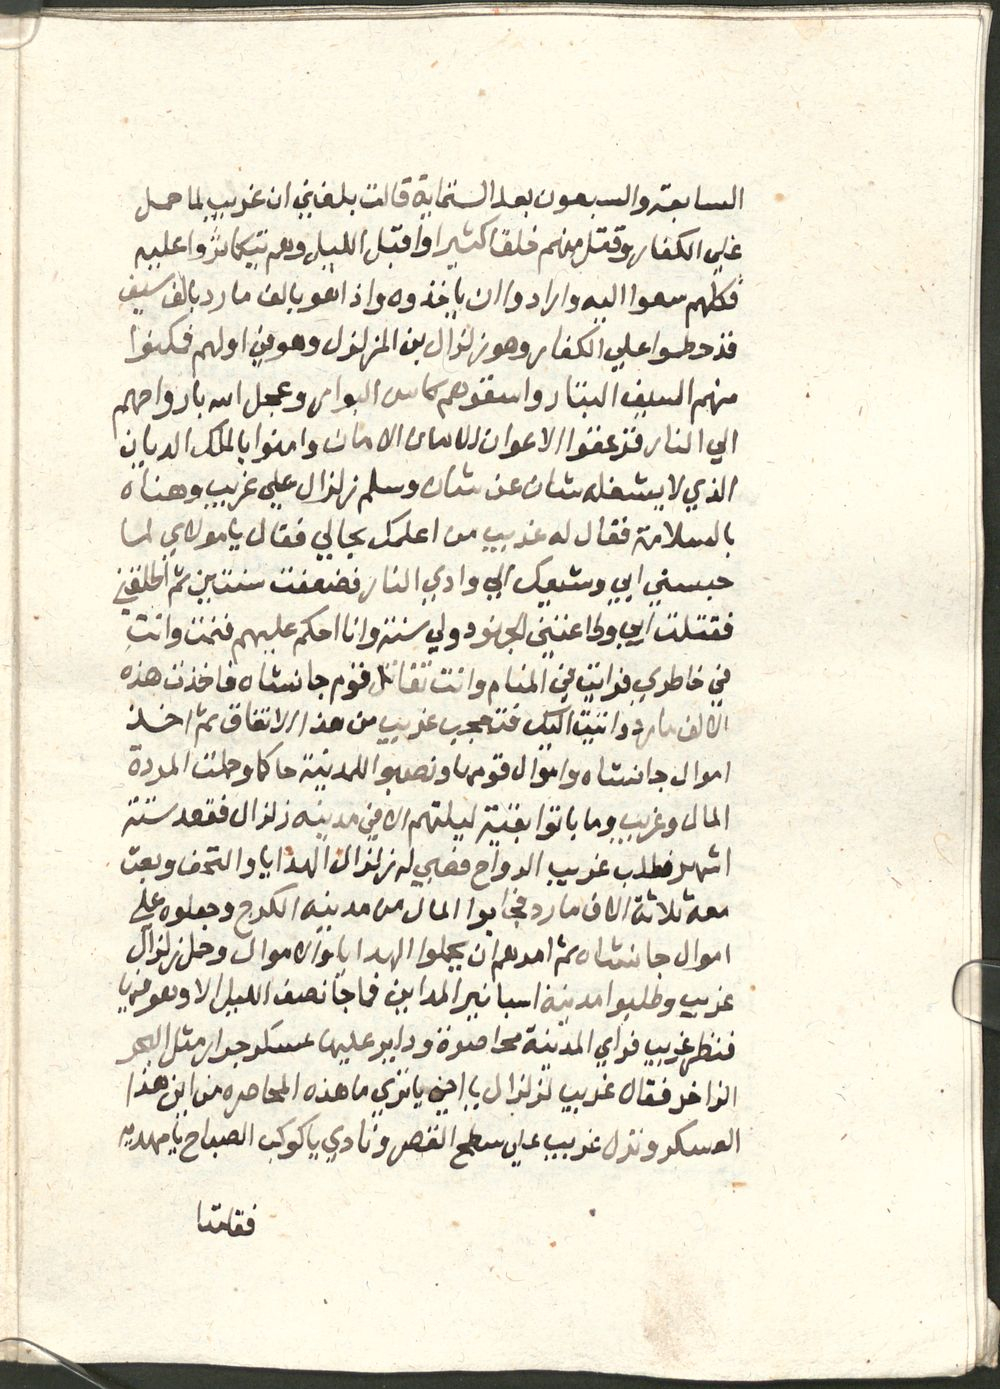 السابعة والسبعون بعد الستماية قالت بلغني ان غريب لما حمل
علي الكفار وقتل منهم خلقا كثيرا واقبل الليل وهم يتكاثروا عليه
فكلهم سعوا اليه وارادوا ان ياخذوه واذا هو بالف مارد بالف سيف
قد حطوا علي الكفار وهو زلزال بن المزلزل وهو في اولهم فمكنوا
منهم السيف البتار واسقوهم كاس البوار وعجل الله بارواحهم
الي النار فزعقوا الاعوان الامان الامان وامنوا بالملك الديان
الذي لا يشغله شان عن شان وسلم زلزال علي غريب وهناه
بالسلامة فقال له غريب من اعلمك بحالي فقال يا مولاي لما
حبسني ابي وشيعك الي وادي النار فضعفت سنتين ثم اطلقني
فقتلت ابي وطاعتني الجنود ولي سنة وانا احكم عليهم فنمت وانت
في خاطري فرايت في المنام وانت تقاتل قوم جانشاه فاخذت هذه
الالف مارد واتيت اليك فتعجب غريب من هذا الاتفاق ثم اخذ
اموال جانشاه واموال قومه ونصبوا للمدينة حاكما وحملت المردة
المال وغريب وما باتوا بقية ليلتهم الا في مدينة زلزال فقعد ستة
اشهر فطلب غريب الرواح فعبي له زلزال الهدايا والتحف وبعت
معه ثلاثة الاف مارد فجابوا المال من مدينه الكرج وجعلوه علي
اموال جانشاه ثم امرهم ان يحملوا الهدايا والاموال وحمل زلزال
غريب وطلبوا مدينة اسبانير المداين فما جا نصف الليل الا وهو فيها
فنظر غريب فراي المدينة محاصرة وداير عليها عسكر جرار مثل البحر
الزاخر فقال غريب لزلزال يا اخي يا تري ما هذه المحاصره من اين هذا
العسكر ونزل غريب علي سطح القصر ونادي يا كوكب الصباح يا مهديه
فقامتا